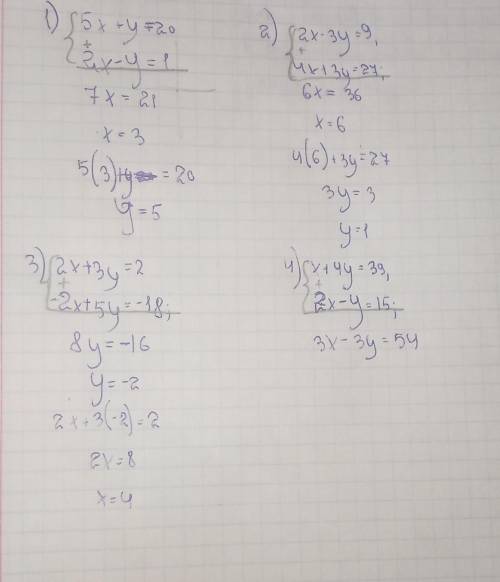 1) 5x+y=20
+
2x-y=1
7x=21
x=3
5(3)+y=20
y=5
2) 2x-3y=9,
+
4x+3y=27;
6x=36
x=6
4(6)+3y=27
3y=3
y=1
3) 2x+3y=2
+
-2x+5y=-18;
8y=-16
y=-2
2x+3(-2)=2
2x=8
x=4
4) x+4y=39,
+
2x-y=15;
3x-3y=54